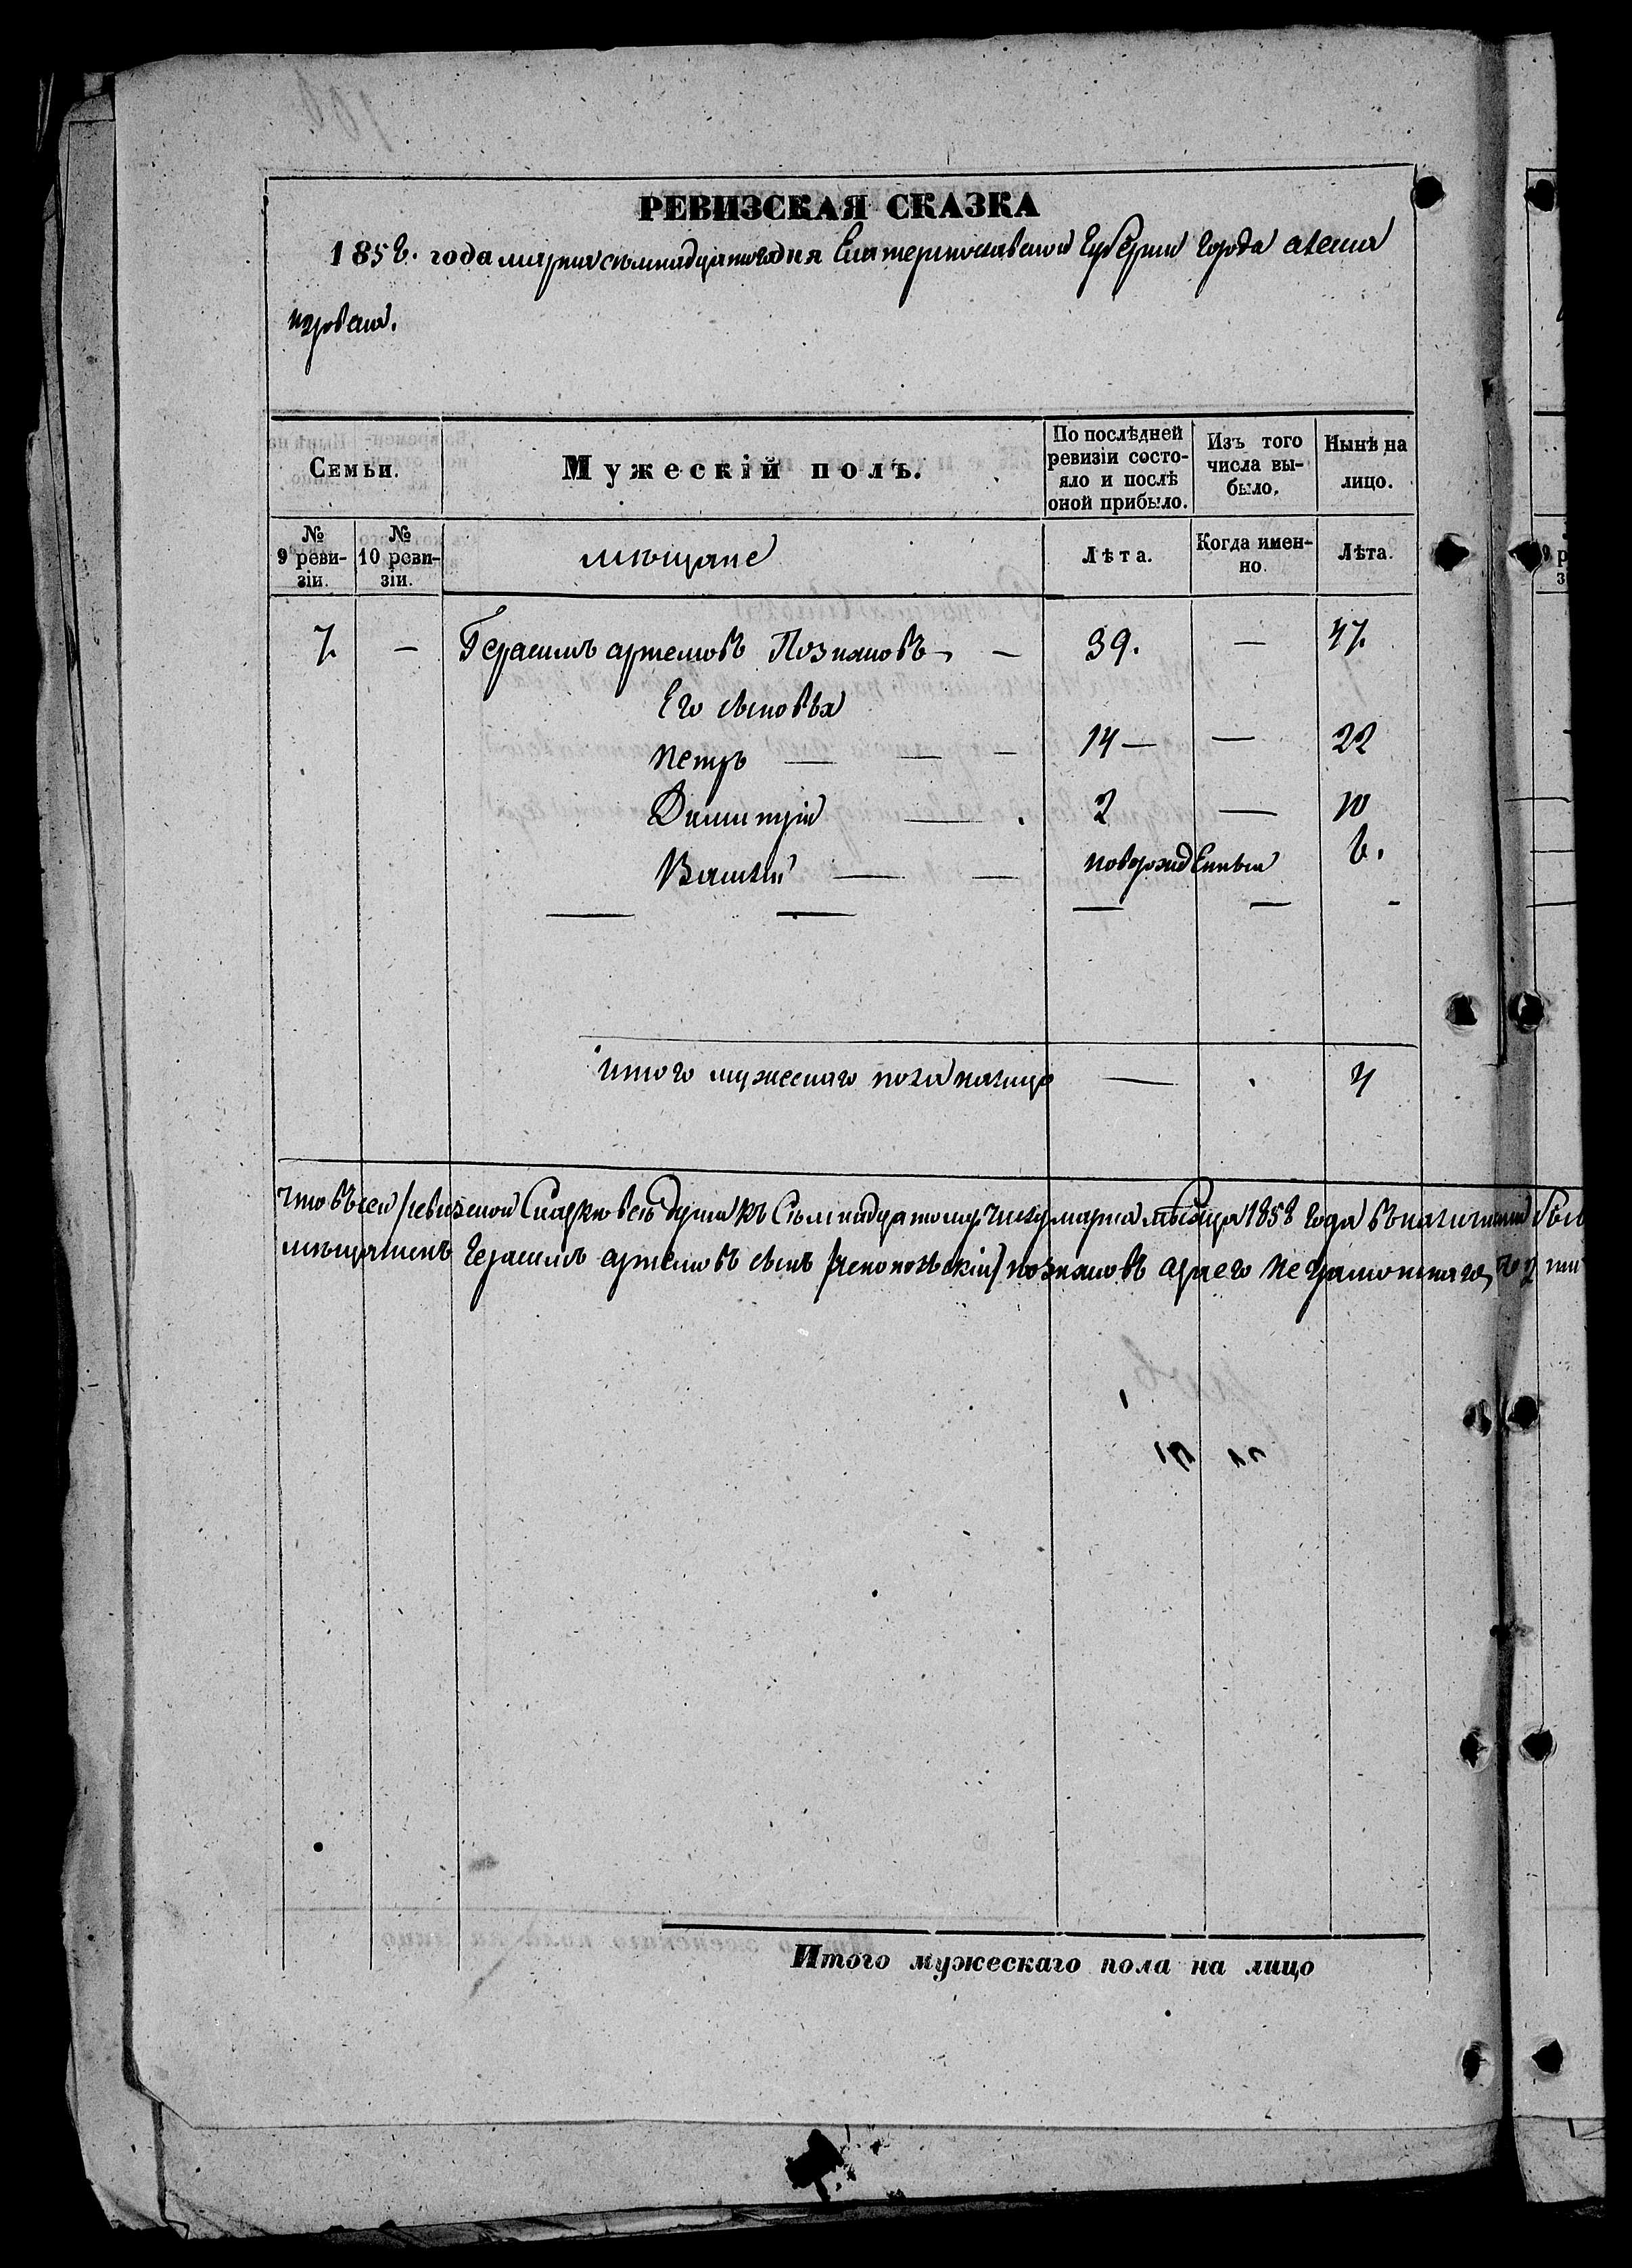 РЕВИЗСКАЯ СКАЗКА
1858. года марта семнадцатого дня Екатеринославской Губерній города алекса
ндровска.
Семьи.
Мужескій полъ.
По послѣдней ревизіи состояло и послѣ оной прибыло.
Изъ того числа выбыло.
Нынѣ на лицо.
№ 9 ревизіи.
№ 10 ревизіи.
мѣщане
Лѣта.
Когда именно
Лѣта.
7. — Герасимъ артемовъ Познаховъ — 39. — 47.
Его сыновья
Петръ — — — 14 — — 22
Димитрій — 2 — 10
Василій — — новорожденный 8.
итого мужескаго пола налицо — 4
что въ сей ревизской Сказке все душа къ Семнадцатому числу марта мѣсяца 1858 года въ наличности
мещанинъ Герасимъ артемовъ сынъ познаховъ а за его неграмотнаго,
Итого мужескаго пола на лицо